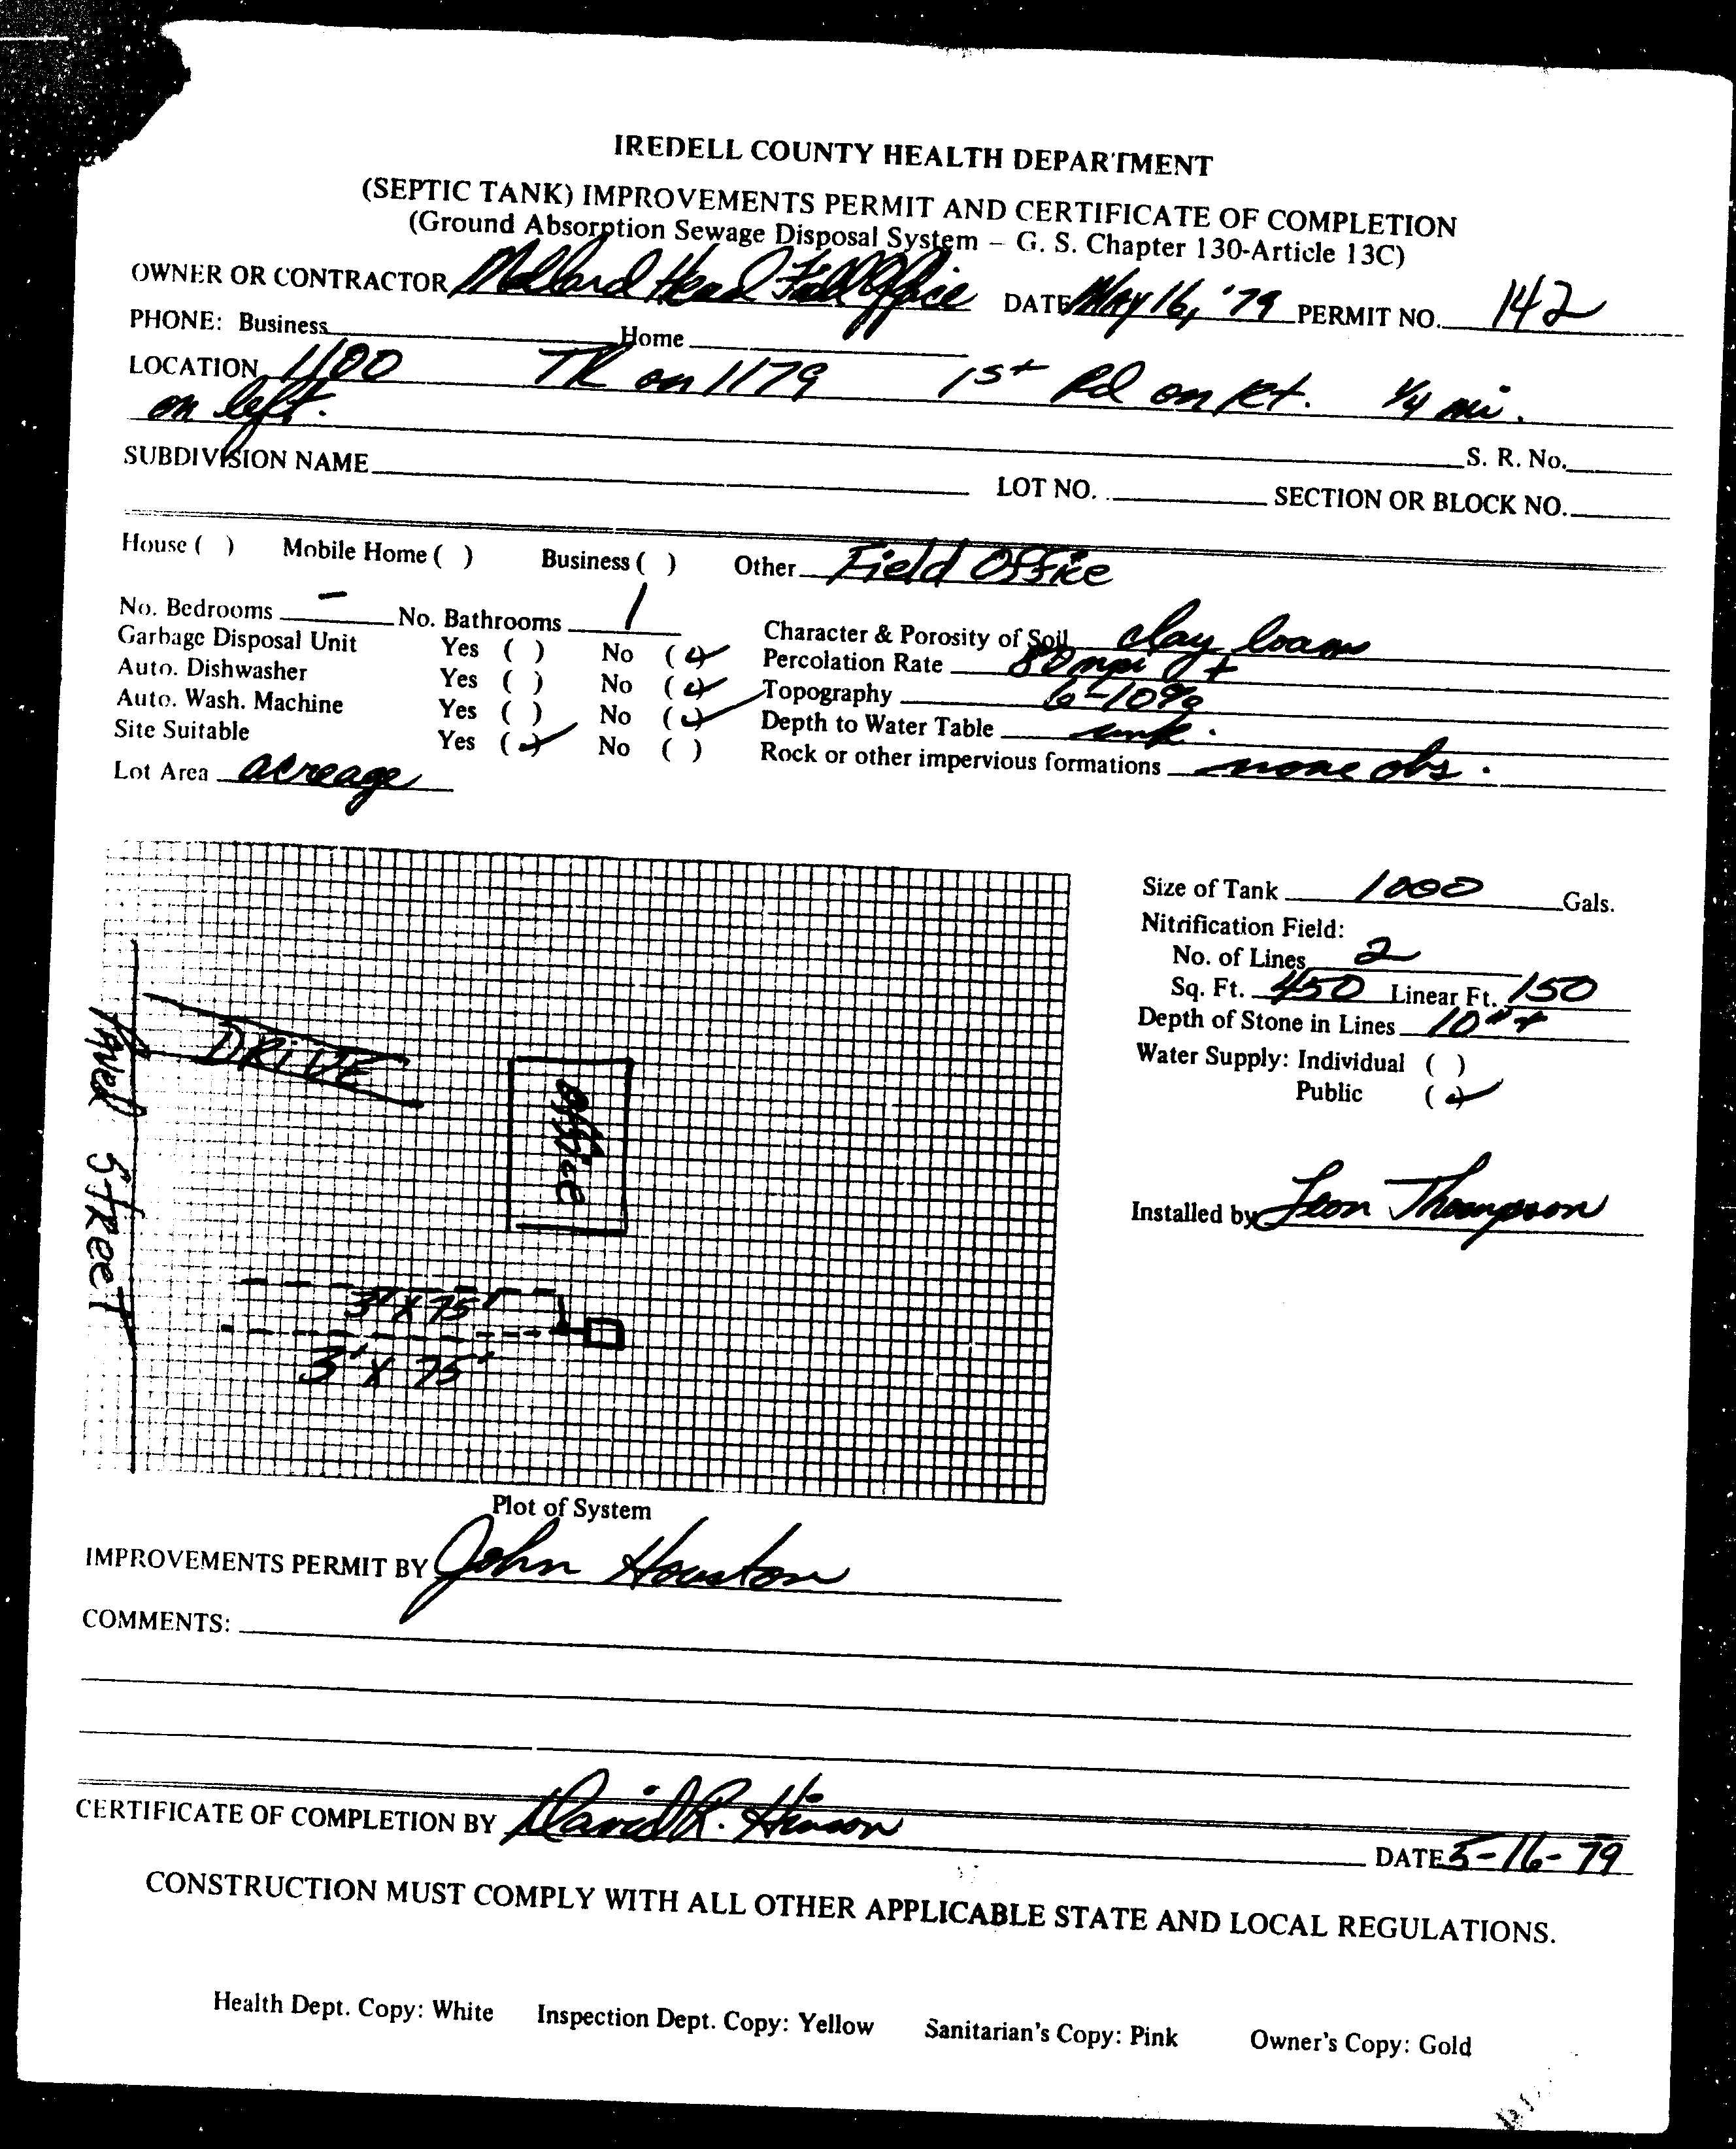 IREDELL COUNTY HEALTH DEPARTMENT
(SEPTIC TANK) IMPROVEMENTS PERMIT AND CERTIFICATE OF COMPLETION
(Ground Absorption Sewage Disposal System – G. S. Chapter 130-Article 13C)
OWNER OR CONTRACTOR Mallard Head Field Office DATE May 16, '79 PERMIT NO. 142
PHONE: Business Home
LOCATION 1100 TR on 1179 1st Rd on Rt. 1/4 mi.
on left.
S. R. No.
SUBDIVISION NAME LOT NO. SECTION OR BLOCK NO.
House ( ) Mobile Home ( ) Business ( ) Other Field Office
No. Bedrooms – No. Bathrooms 1
Character & Porosity of Soil clay loam
Garbage Disposal Unit Yes ( ) No (✓)
Percolation Rate 80 mpi +
Auto. Dishwasher Yes ( ) No (✓)
Topography 6-10%
Auto. Wash. Machine Yes ( ) No (✓)
Depth to Water Table unk.
Site Suitable Yes (✓) No ( )
Rock or other impervious formations none obs.
Lot Area acreage
Size of Tank 1000 Gals.
Nitrification Field:
No. of Lines 2
Sq. Ft. 450 Linear Ft. 150
Depth of Stone in Lines 10" +
Water Supply: Individual ( )
Public (✓)
Installed by Leon Thompson
Paved Street
DRIVE
Office
3' X 75'
3' X 75'
Plot of System
IMPROVEMENTS PERMIT BY John Houston
COMMENTS:
CERTIFICATE OF COMPLETION BY David R. Hinson
DATE 5-16-79
CONSTRUCTION MUST COMPLY WITH ALL OTHER APPLICABLE STATE AND LOCAL REGULATIONS.
Health Dept. Copy: White Inspection Dept. Copy: Yellow Sanitarian's Copy: Pink Owner's Copy: Gold